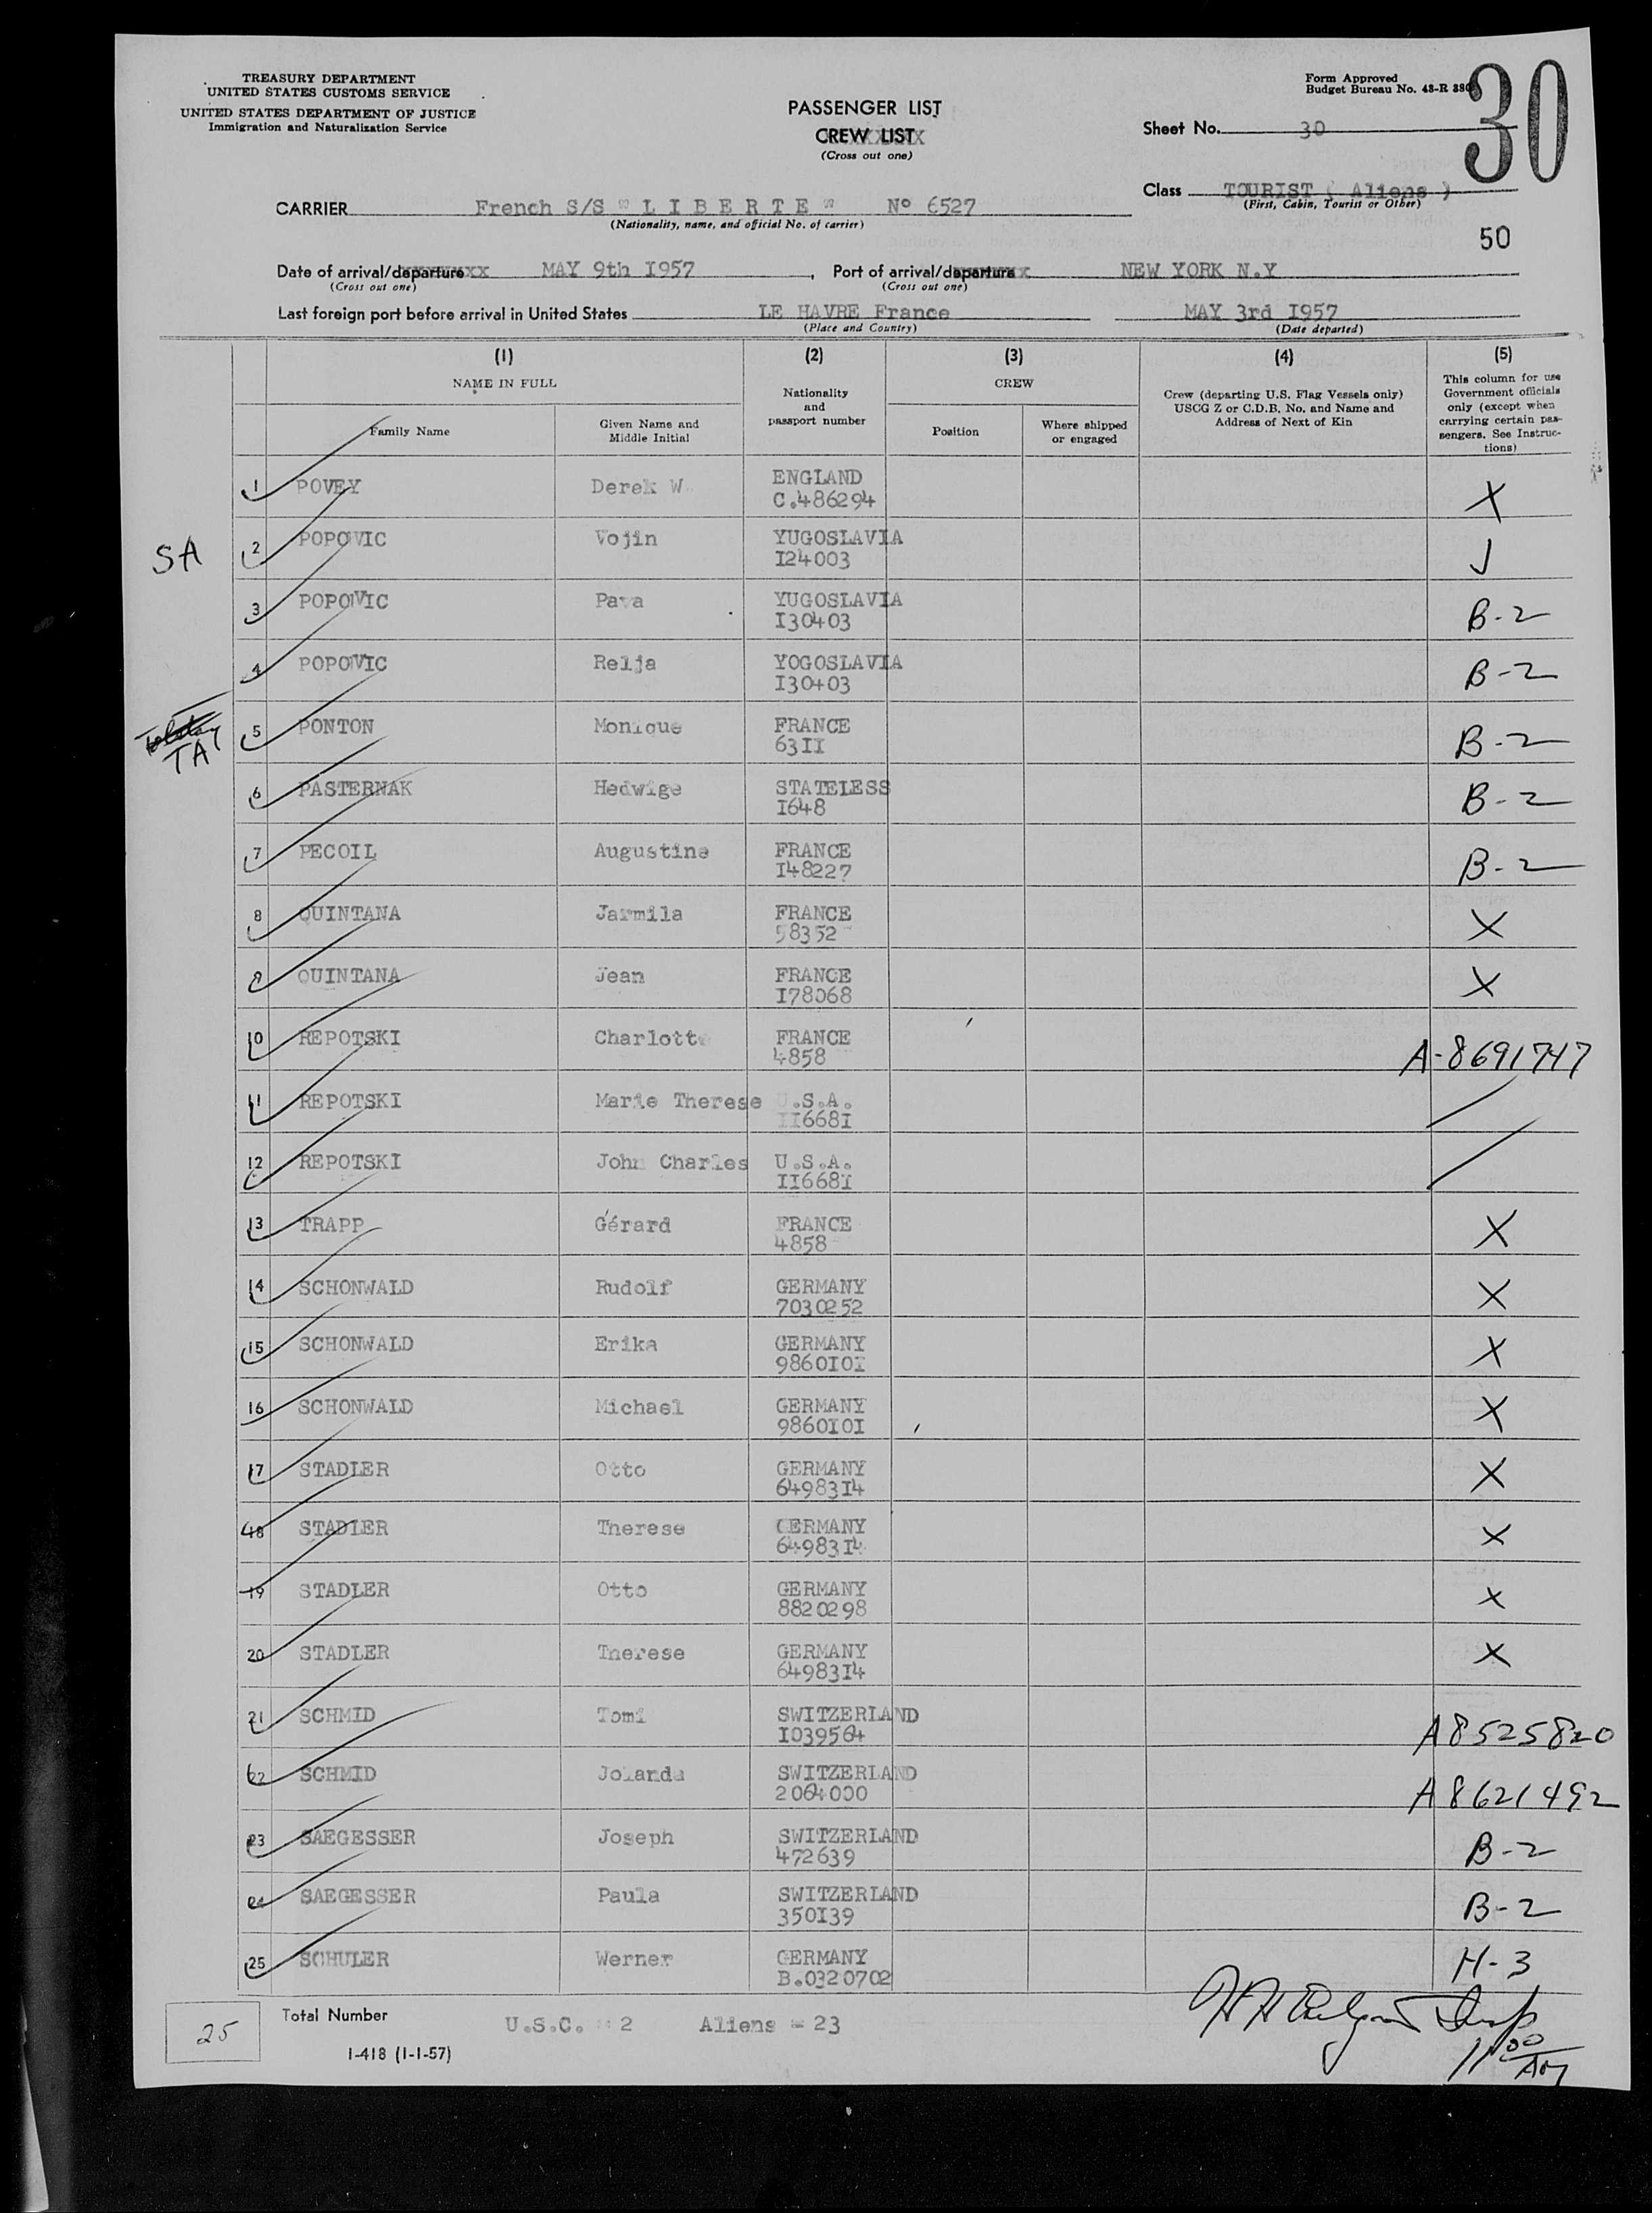 TREASURY DEPARTMENT
UNITED STATES CUSTOMS SERVICE
UNITED STATES DEPARTMENT OF JUSTICE
Immigration and Naturalization Service
PASSENGER LIST
CREW LIST
(Cross out one)
Form Approved
Budget Bureau No. 43-R
30
Sheet No. 30
Class TOURIST ( Aliens )
(First, Cabin, Tourist or Other)
CARRIER French S/S " L I B E R T E " Nº 6527
(Nationality, name, and official No. of carrier)
50
Date of arrival/departure MAY 9th I957, Port of arrival/departure NEW YORK N.Y
(Cross out one) (Cross out one)
Last foreign port before arrival in United States LE HAVRE France MAY 3rd I957
(Place and Country) (Date departed)
(1) (2) (3) (4) (5)
NAME IN FULL
Family Name
Given Name and
Middle Initial
Nationality
and
passport number
CREW
Position
Where shipped
or engaged
Crew (departing U.S. Flag Vessels only)
USCG Z or C.D.B. No. and Name and
Address of Next of Kin
This column for use
Government officials
only (except when
carrying certain pas-
sengers. See Instruc-
tions)
1 POVEY Derek W. ENGLAND X
C.486294
SA 2 POPOVIC Vojin YUGOSLAVIA J
I24003
3 POPOVIC Pava YUGOSLAVIA B-2
I30403
4 POPOVIC Relja YOGOSLAVIA B-2
I30403
TAY 5 PONTON Monique FRANCE B-2
63II
6 PASTERNAK Hedwige STATELESS B-2
I648
7 PECOIL Augustine FRANCE B-2
I48227
8 QUINTANA Jarmila FRANCE X
58352
9 QUINTANA Jean FRANCE X
I78068
10 REPOTSKI Charlotte FRANCE A-8691747
4858
11 REPOTSKI Marie Therese U.S.A.
II668I
12 REPOTSKI John Charles U.S.A.
II668I
13 TRAPP Gérard FRANCE X
4858
14 SCHONWALD Rudolf GERMANY X
7030252
15 SCHONWALD Erika GERMANY X
9860I0I
16 SCHONWALD Michael GERMANY X
9860I0I
17 STADLER Otto GERMANY X
64983I4
18 STADLER Therese GERMANY X
64983I4
19 STADLER Otto GERMANY X
8820298
20 STADLER Therese GERMANY X
64983I4
21 SCHMID Tomi SWITZERLAND A8525820
I039564
22 SCHMID Jolanda SWITZERLAND A8621492
2064000
23 SAEGESSER Joseph SWITZERLAND B-2
472639
24 SAEGESSER Paula SWITZERLAND B-2
350I39
25 SCHULER Werner GERMANY H-3
B.0320702
25
Total Number U.S.C. = 2 Aliens = 23
I-418 (1-1-57)
11 00
AM